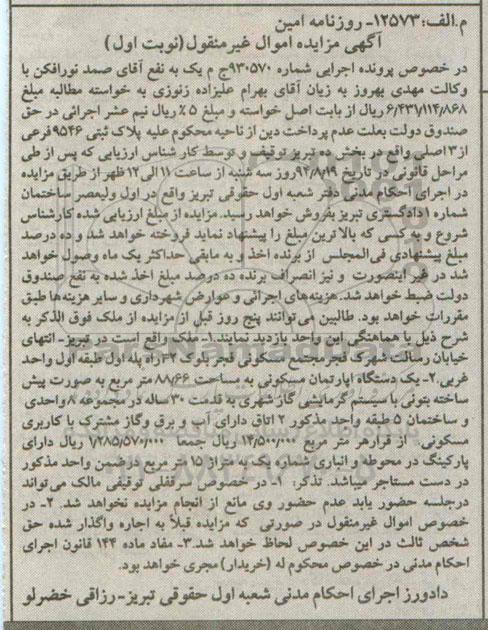 م.الف:۱۲۵۷۳- روزنامه امین
آگهی مزایده اموال غیرمنقول(نوبت اول)
در خصوص پرونده اجرایی شماره ۹۳۰۵۷۰ج م یک به نفع آقای صمد نورافکن با
وکالت مهدی بهروز به زیان آقای بهرام علیزاده زنوزی به خواسته مطالبه مبلغ
۶/۴۳۱/۱۱۴/۸۶۸ ریال از بابت اصل خواسته و مبلغ ۵٪ ریال نیم عشر اجرائی در حق
صندوق دولت بعلت عدم پرداخت دین از ناحیه محکوم علیه پلاک ثبتی ۹۵۴۶فرعی
از۳اصلی واقع در بخش ده تبریز توقیف و توسط کارشناس ارزیابی که پس از طی
مراحل قانونی در تاریخ ۹۴/۸/۱۹روز سه شنبه از ساعت ۱۱ الی۱۲ ظهر از طریق مزایده
در اجرای احکام مدنی دفتر شعبه اول حقوقی تبریز واقع در اول ولیعصر ساختمان
شماره ۱دادگستری تبریز بفروش خواهد رسید. مزایده از مبلغ ارزیابی شده کارشناس
شروع و به کسی که بالاترین مبلغ را پیشنهاد نماید فروخته خواهد شد و ده درصد
مبلغ پیشنهادی فی‌المجلس از برنده اخذ و به مابقی حداکثر یک ماه وصول خواهد
شد در غیر اینصورت و نیز انصراف برنده ده درصد مبلغ اخذ شده به نفع صندوق
دولت ضبط خواهد شد. هزینه‌های اجرائی و عوارض شهرداری و سایر هزینه‌ها طبق
مقررات خواهد بود. طالبین می‌توانند پنج روز قبل از مزایده از ملک فوق الذکر به
شرح ذیل با هماهنگی این واحد بازدید نمایند.۱- ملک واقع است در تبریز- انتهای
خیابان رسالت شهرک فجرمجتمع مسکونی فجر بلوک ۲-راه پله اول طبقه اول واحد
غربی.۲- یک دستگاه آپارتمان مسکونی به مساحت ۸۸/۶۶ متر مربع به صورت پیش
ساخته بتونی با سیستم گرمایشی گاز شهری به قدمت ۳۰ ساله در مجموعه ۸ واحدی
و ساختمان ۵ طبقه واحد مذکور ۲ اتاق دارای آب و برق وگاز مشترک با کاربری
مسکونی. از قرار هر متر مربع ۱۴/۵۰۰/۰۰۰ ریال جمعا ۱/۲۸۵/۵۷۰/۰۰۰ ریال دارای
پارکینگ در محوطه و انباری شماره یک به متراژ ۸ متر مربع درضمن واحد مذکور
در دست مستاجر میباشد. تذکر: ۱- در خصوص ملک توقیفی مالک می‌تواند
درجلسه حضور یابد عدم حضور وی مانع از انجام مزایده نخواهد شد. ۲- در
خصوص اموال غیرمنقول در صورتی که مزایده قبلاً به اجاره واگذار شده حق
شخص ثالث در این خصوص لحاظ خواهد شد.۳- مفاد ماده ۱۴۴ قانون اجرای
احکام مدنی در خصوص محکوم له (خریدار) مجری خواهد بود.
دادورز اجرای احکام مدنی شعبه اول حقوقی تبریز-رزاقی خضرلو